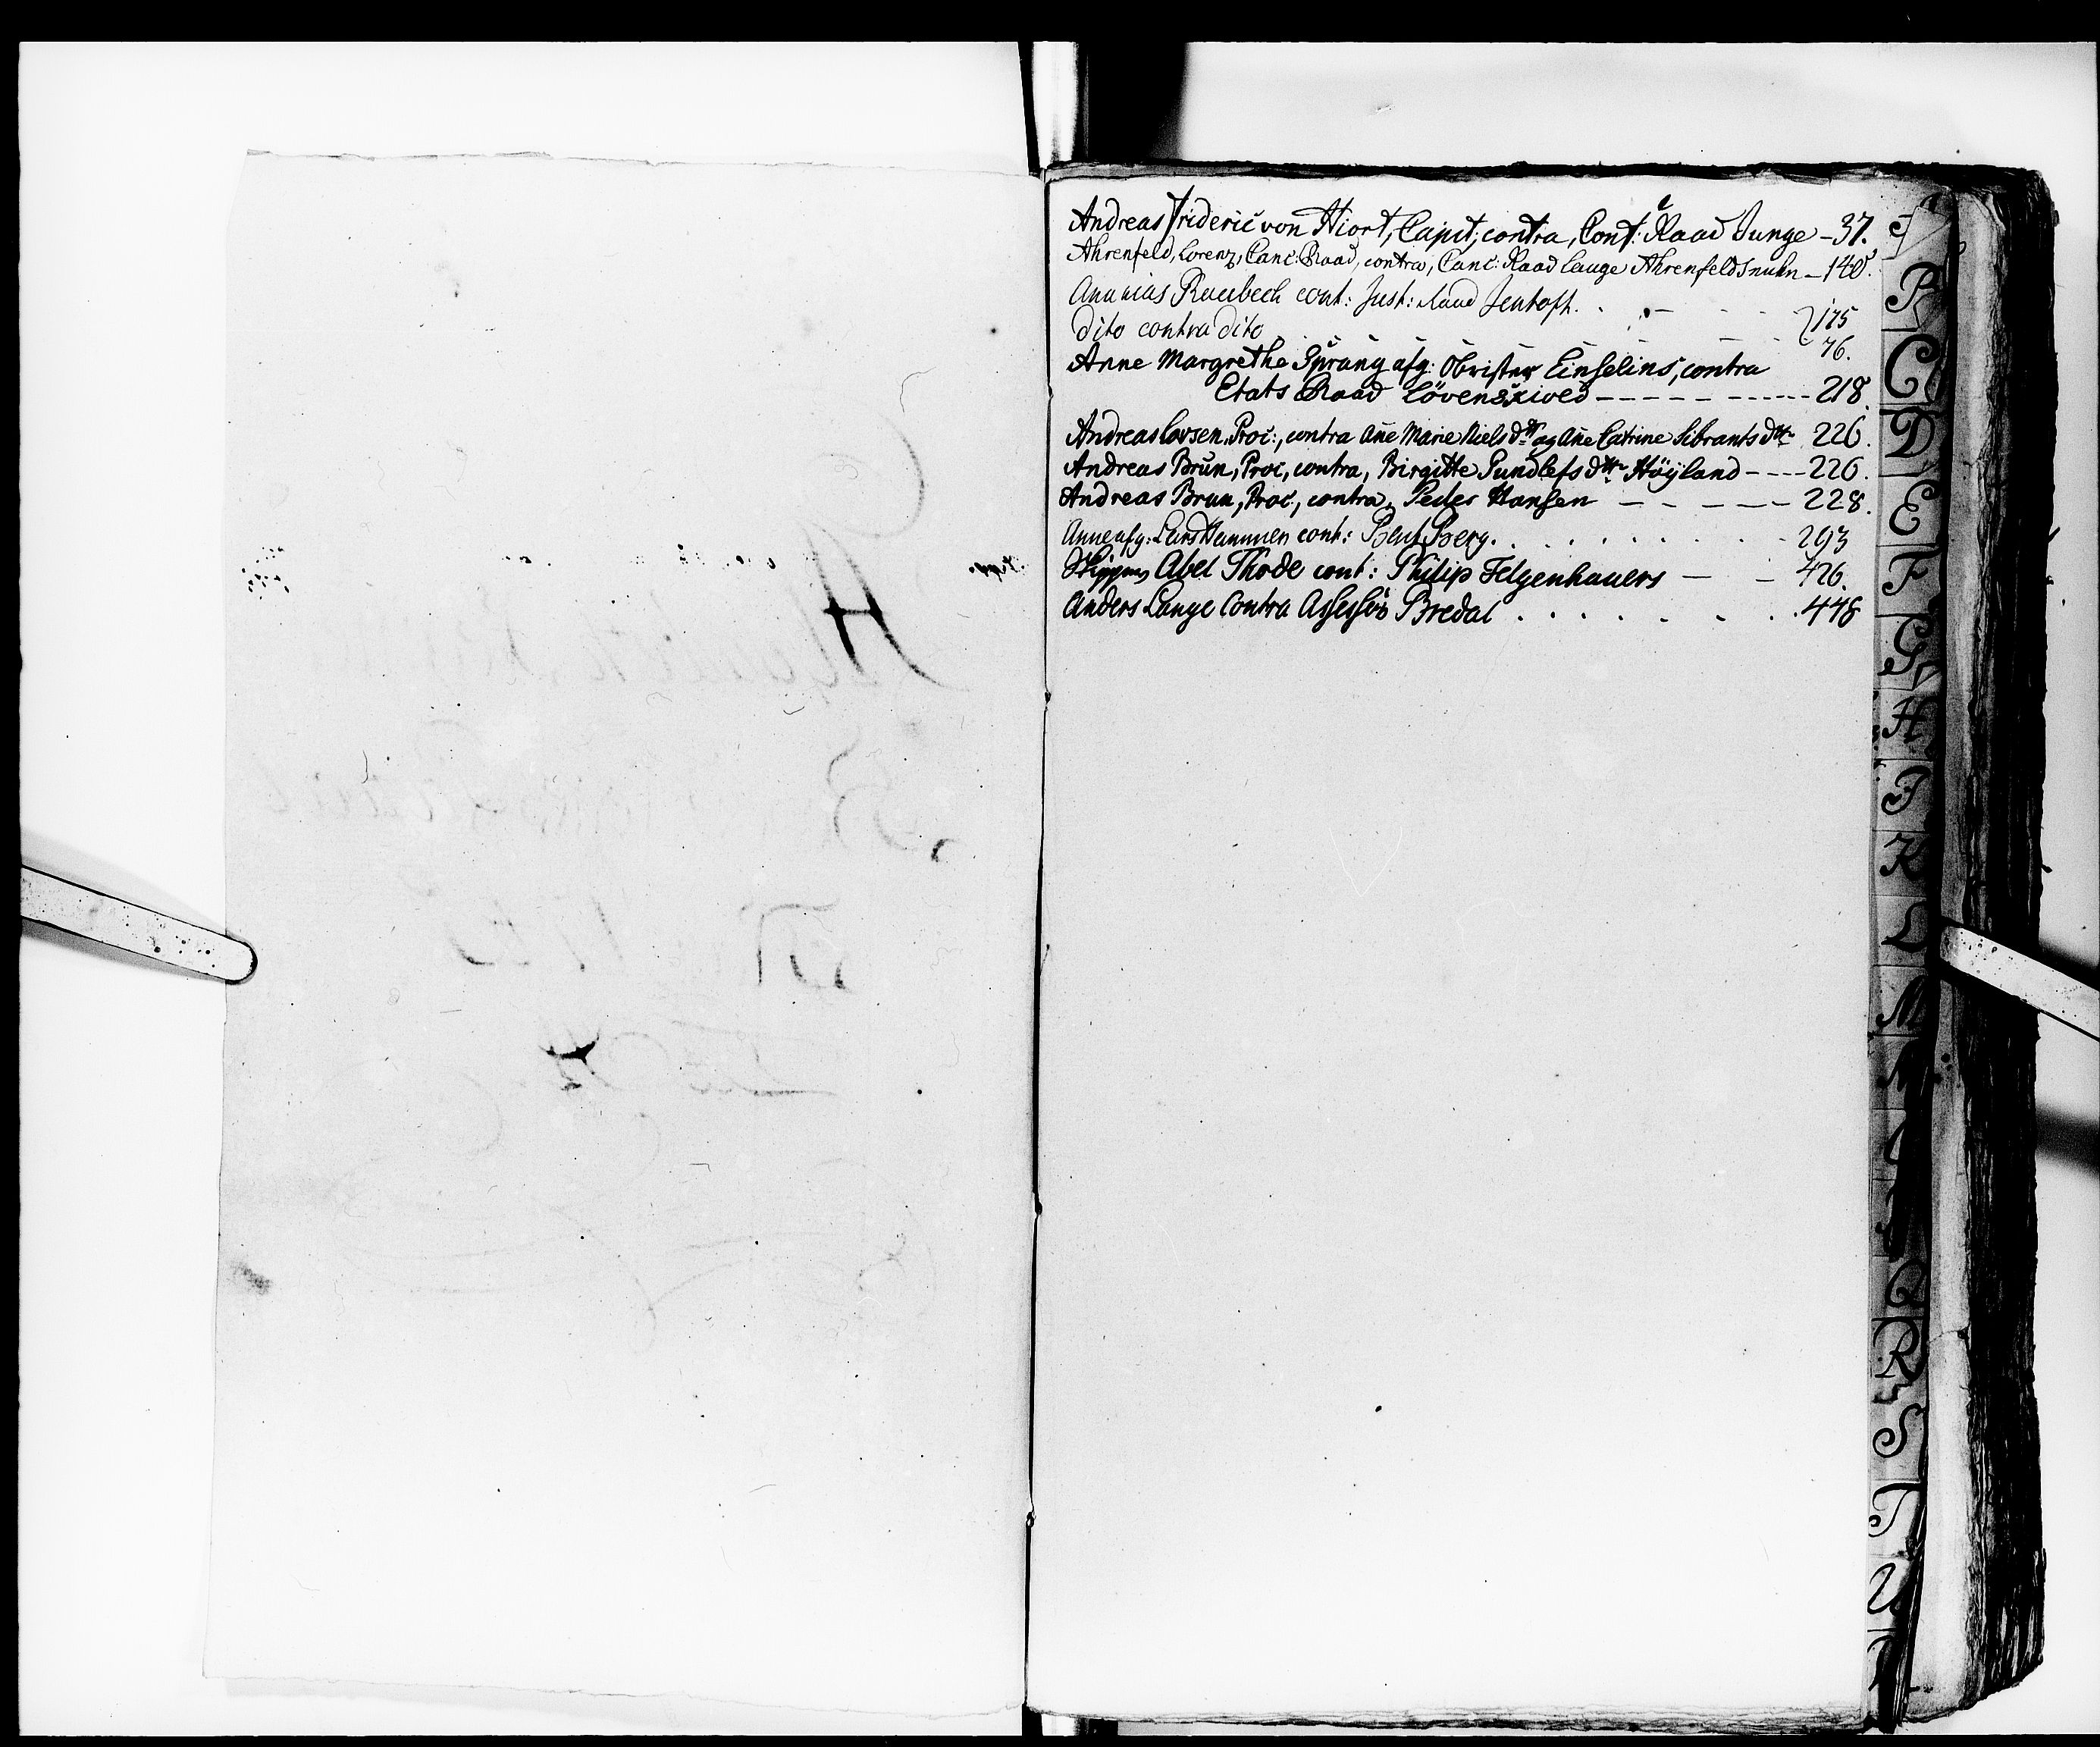 Andreas Frideric von Hiort, Capit; contra, Conf: Raad Junge - 37.
Ahrenfeld, Lorenz, Canc: Raad, contra, Canc: Raad Lauge Ahrenfeld - 140.
Ananias cont: Just: Raad Jentoft. 175
Dito contra Dito 76.
Anne Margrethe Sprang afg: Einselins, contra
Etats Raad Lövenskiold - - - - - - 218.
Andreas Larsen, Proc:, contra Añe Marie Niels dtr og Añe Catrine Sibrants dtr 226.
Andreas Brun, Proc, contra, Birgitte Gundlefs dtr Höyland - - - - 226.
Andreas Brun, Proc:, contra, Peder Hansen - - - - - 228.
Anne afg: Lars Hammer cont: Bent Berg. 293
Abel Thode cont: Philip Felgenhauers - - 426.
Anders Lange Contra Assessor Bredal 448
B
C
D
E
F
G
H
I
K
L
M
Q
R
S
T
U